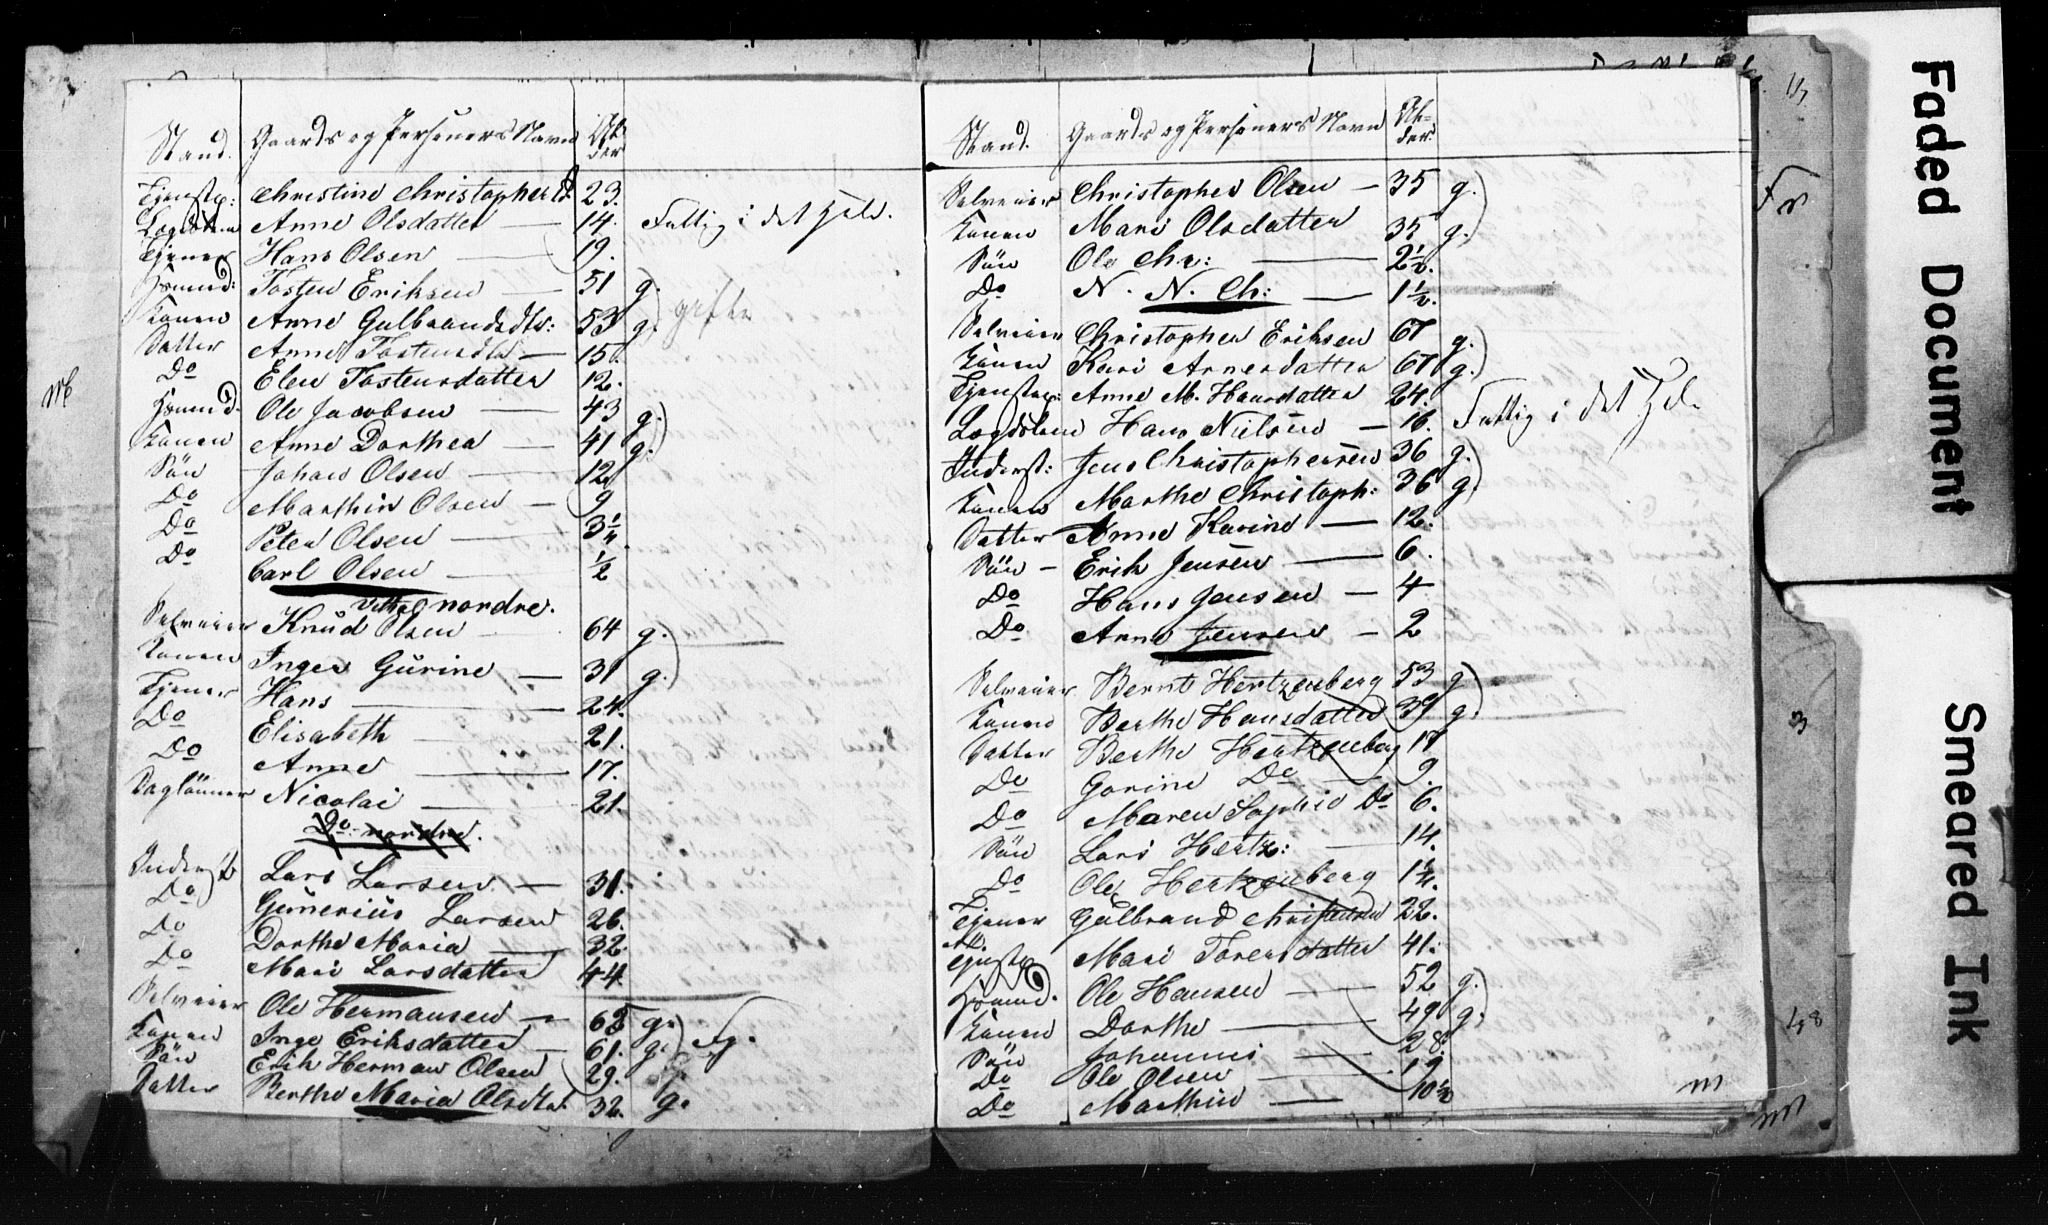 Stand. Gaards og Personers Navn Al- der
Tjenstp: Christine Christophersd. 23.
Lægdslem Anne Olsdatter — 14. Fattig i det Hele.
Tjener Hans Olsen — 19.
Huusmd: Tosten Eriksen — 51 g.
Konen Anne Gulbrandsdtr: 53 g. gifte
Datter Anne Tostensdtr — 15.
Do Elen Tostensdatter 12.
Huusmd. Ole Jacobsen — 43 g.
Konen Anne Dorthea — 41 g.
Søn Johan Olsen — 12
Do Marthin Olsen — 9
Do Peter Olsen — 3 1/4
Do Carl Olsen — 1/2
nordre.
Selveier Knud Olsen 64 g.
Konen Inger Gurine — 31 g.
Tjener Hans — 24.
Do Elisabeth — 21.
Do Anne — 17.
Daglønner Nicolai — 21.
Do. nordre.
Inderst Lars Larsen — 31.
Do Gunerius Larsen 26.
Do Dorthe Maria — 32.
Do Mari Larsdatter 44.
Selveier Ole Hermansen — 63 g.
Konen Inge Eriksdatter — 61. g. Fg.
Søn Erik Herman Olsen 29.
Datter Berthe Maria Olsdtr. 32. g.
Stand. Gaards og Personers Navn Al- der.
Selveier Christopher Olsen — 35 g.
Konen Mari Olsdatter 35 g.
Søn Ole Chr: — 2 1/2.
Do N. N. Ch: — 1 1/2.
Selveier Christopher Eriksen 67 g.
Konen Kari Arnesdatter 67 g.
Tjenstp: Anne M. Hansdatter 24.
Lægdslem Hans Nielsen — 16. Fattig i det Hele
Inderst: Jens Christophersen 36 g.
Konen Marthe Christoph: 36 g.
Datter Anne Karine — 12.
Søn — Erik Jensen — 6.
Do Hans Jensen — 4
Do Anne Jensen — 2
Selveier Bernt Hertzenberg 53 g.
Konen Berthe Hansdatter 39 g.
Datter Berthe Hertzenberg 17
Do Gorine Do — 9.
Do Maren Sophie Do 6.
Søn Lars Hertz: — 14.
Do Ole Hertzenberg 1 1/4.
Tjener Gulbrand Christensen 22.
Tjenstp Mari Torersdatter 41.
Huusmd. Ole Hansen — 52 g.
Konen Dorthe — 49 g.
Søn Johannes 28.
Do Ole Olsen — 19
Do Marthin — 10 1/2
Faded Document
Smeared Ink